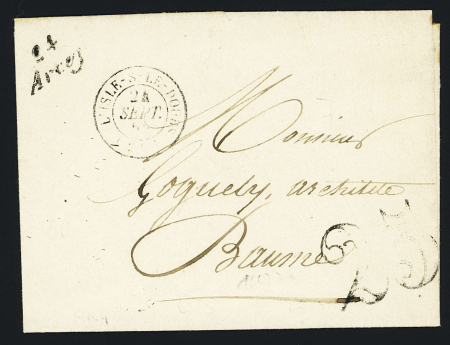 24
Arcey
L'ISLE-S-LE-DOUBS
24
SEPT.
Monsieur
Goguely, architecte
Baume
25